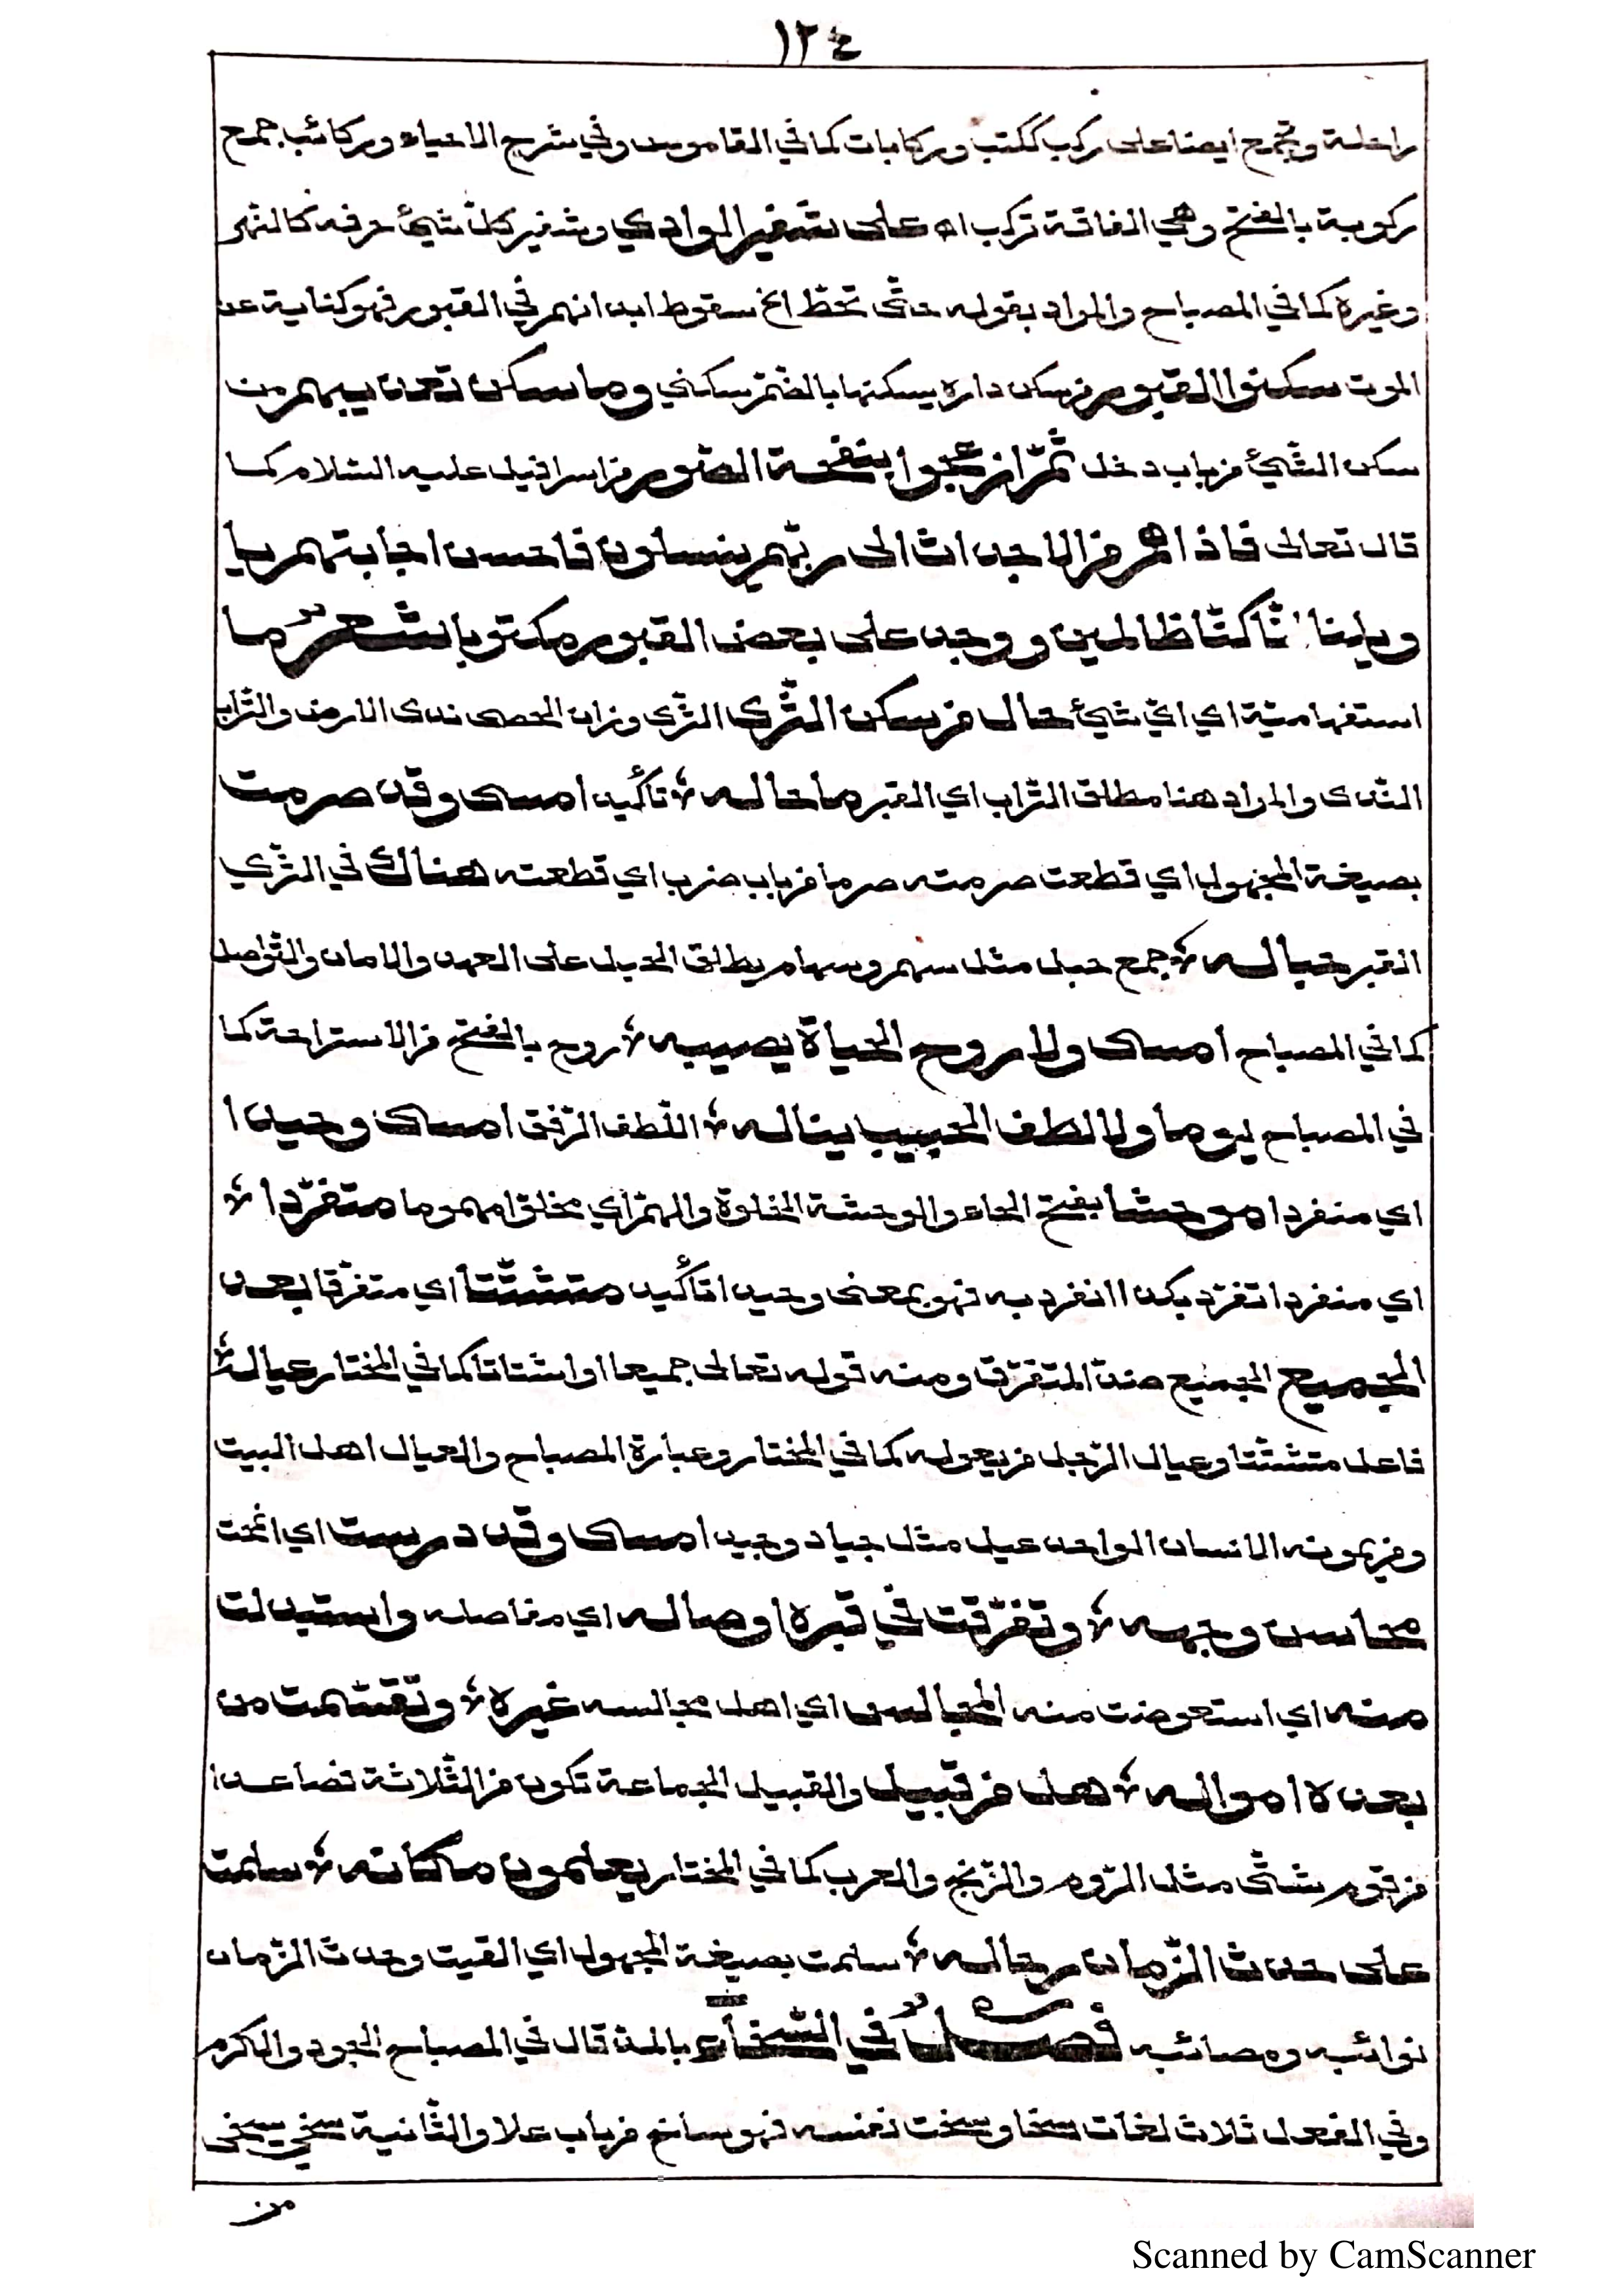 ١٢٤
راحلة وتجمع ايضا على ركب ككتب وركابات كما في القاموس وفي شرح الاحياء وركائب جمع
ركوبة بالفتح وهي الناقة تركب اه على شفير الوادي وشفير كل شيئ حرفه كالنهر
وغيره كما في المصباح والمراد بقوله حتى تحط الخ سقوط ابدانهم في القبور فهو كناية عن
الموت سكنوا القبور من سكن داره يسكنها بالضم سكنى وما سكن تعذيبهم من
سكن الشيئ من باب دخل ثم ازعجوا بنفخة الصور من اسرافيل عليه السلام كما
قال تعالى فاذا هم من الاجداث الى ربهم ينسلون فاحسن اجابتهم يا
ويلنا انا كنا ظالمين ووجد على بعض القبور مكتوبا شعر ما
استفهامية اي اي شيئ حال من سكن الثرى الثرى وزان الحصى ندى الارض والتراب
الندى والمراد هنا مطلق التراب اي القبر ما حاله تأكيد امسى وقد صرمت
بصيغة المجهول اي قطعت صرمته صرما من باب ضرب اي قطعته هناك في الثرى
القبر حباله جمع حبل مثل سهم وسهام يطلق الحبل على العهد والامان والتواصل
كما في المصباح امسى ولا روح الحياة يصيبه روح بالفتح من الاستراحة كما
في المصباح يوما ولا لطف الحبيب يناله اللطف الرفق امسى وحيدا
اي منفردا موحشا بفتح الحاء والوحشة الخلوة والهم اي مخلوا مهموما متفردا
اي منفردا تفرد بكذا انفرد به فهو بمعنى وحيدا تأكيد متشتتا اي متفرقا بعد
الجميع الجميع ضد المتفرق ومنه قوله تعالى جميعا او اشتاتا كما في المختار عياله
فاعل متشتتا وعيال الرجل من يعوله كما في المختار وعبارة المصباح والعيال اهل البيت
ومن يمونه الانسان الواحد عيل مثل جياد وجيد امسى وقد درست اي انمحت
محاسن وجهه وتفرقت في قبره اوصاله اي مفاصله واستبدلت
منه اي استعوضت منه المجالس اي اهل مجالسه غيره وتقسمت من
بعده امواله هل من قبيل والقبيل الجماعة تكون من الثلاثة فصاعدا
من قوم شتى مثل الروم والزنج والعرب كما في المختار يعلمون مكانه سلمت
على حدث الزمان رجاله سلمت بصيغة المجهول اي القيت وحدث الزمان
نوائبه ومصائبه فصل في السخاء بالمد قال في المصباح الجود والكرم
وفي الفعل ثلاث لغات سخا وسخت نفسه فهو ساخ من باب علا والثانية سخي يسخى
من
Scanned by CamScanner